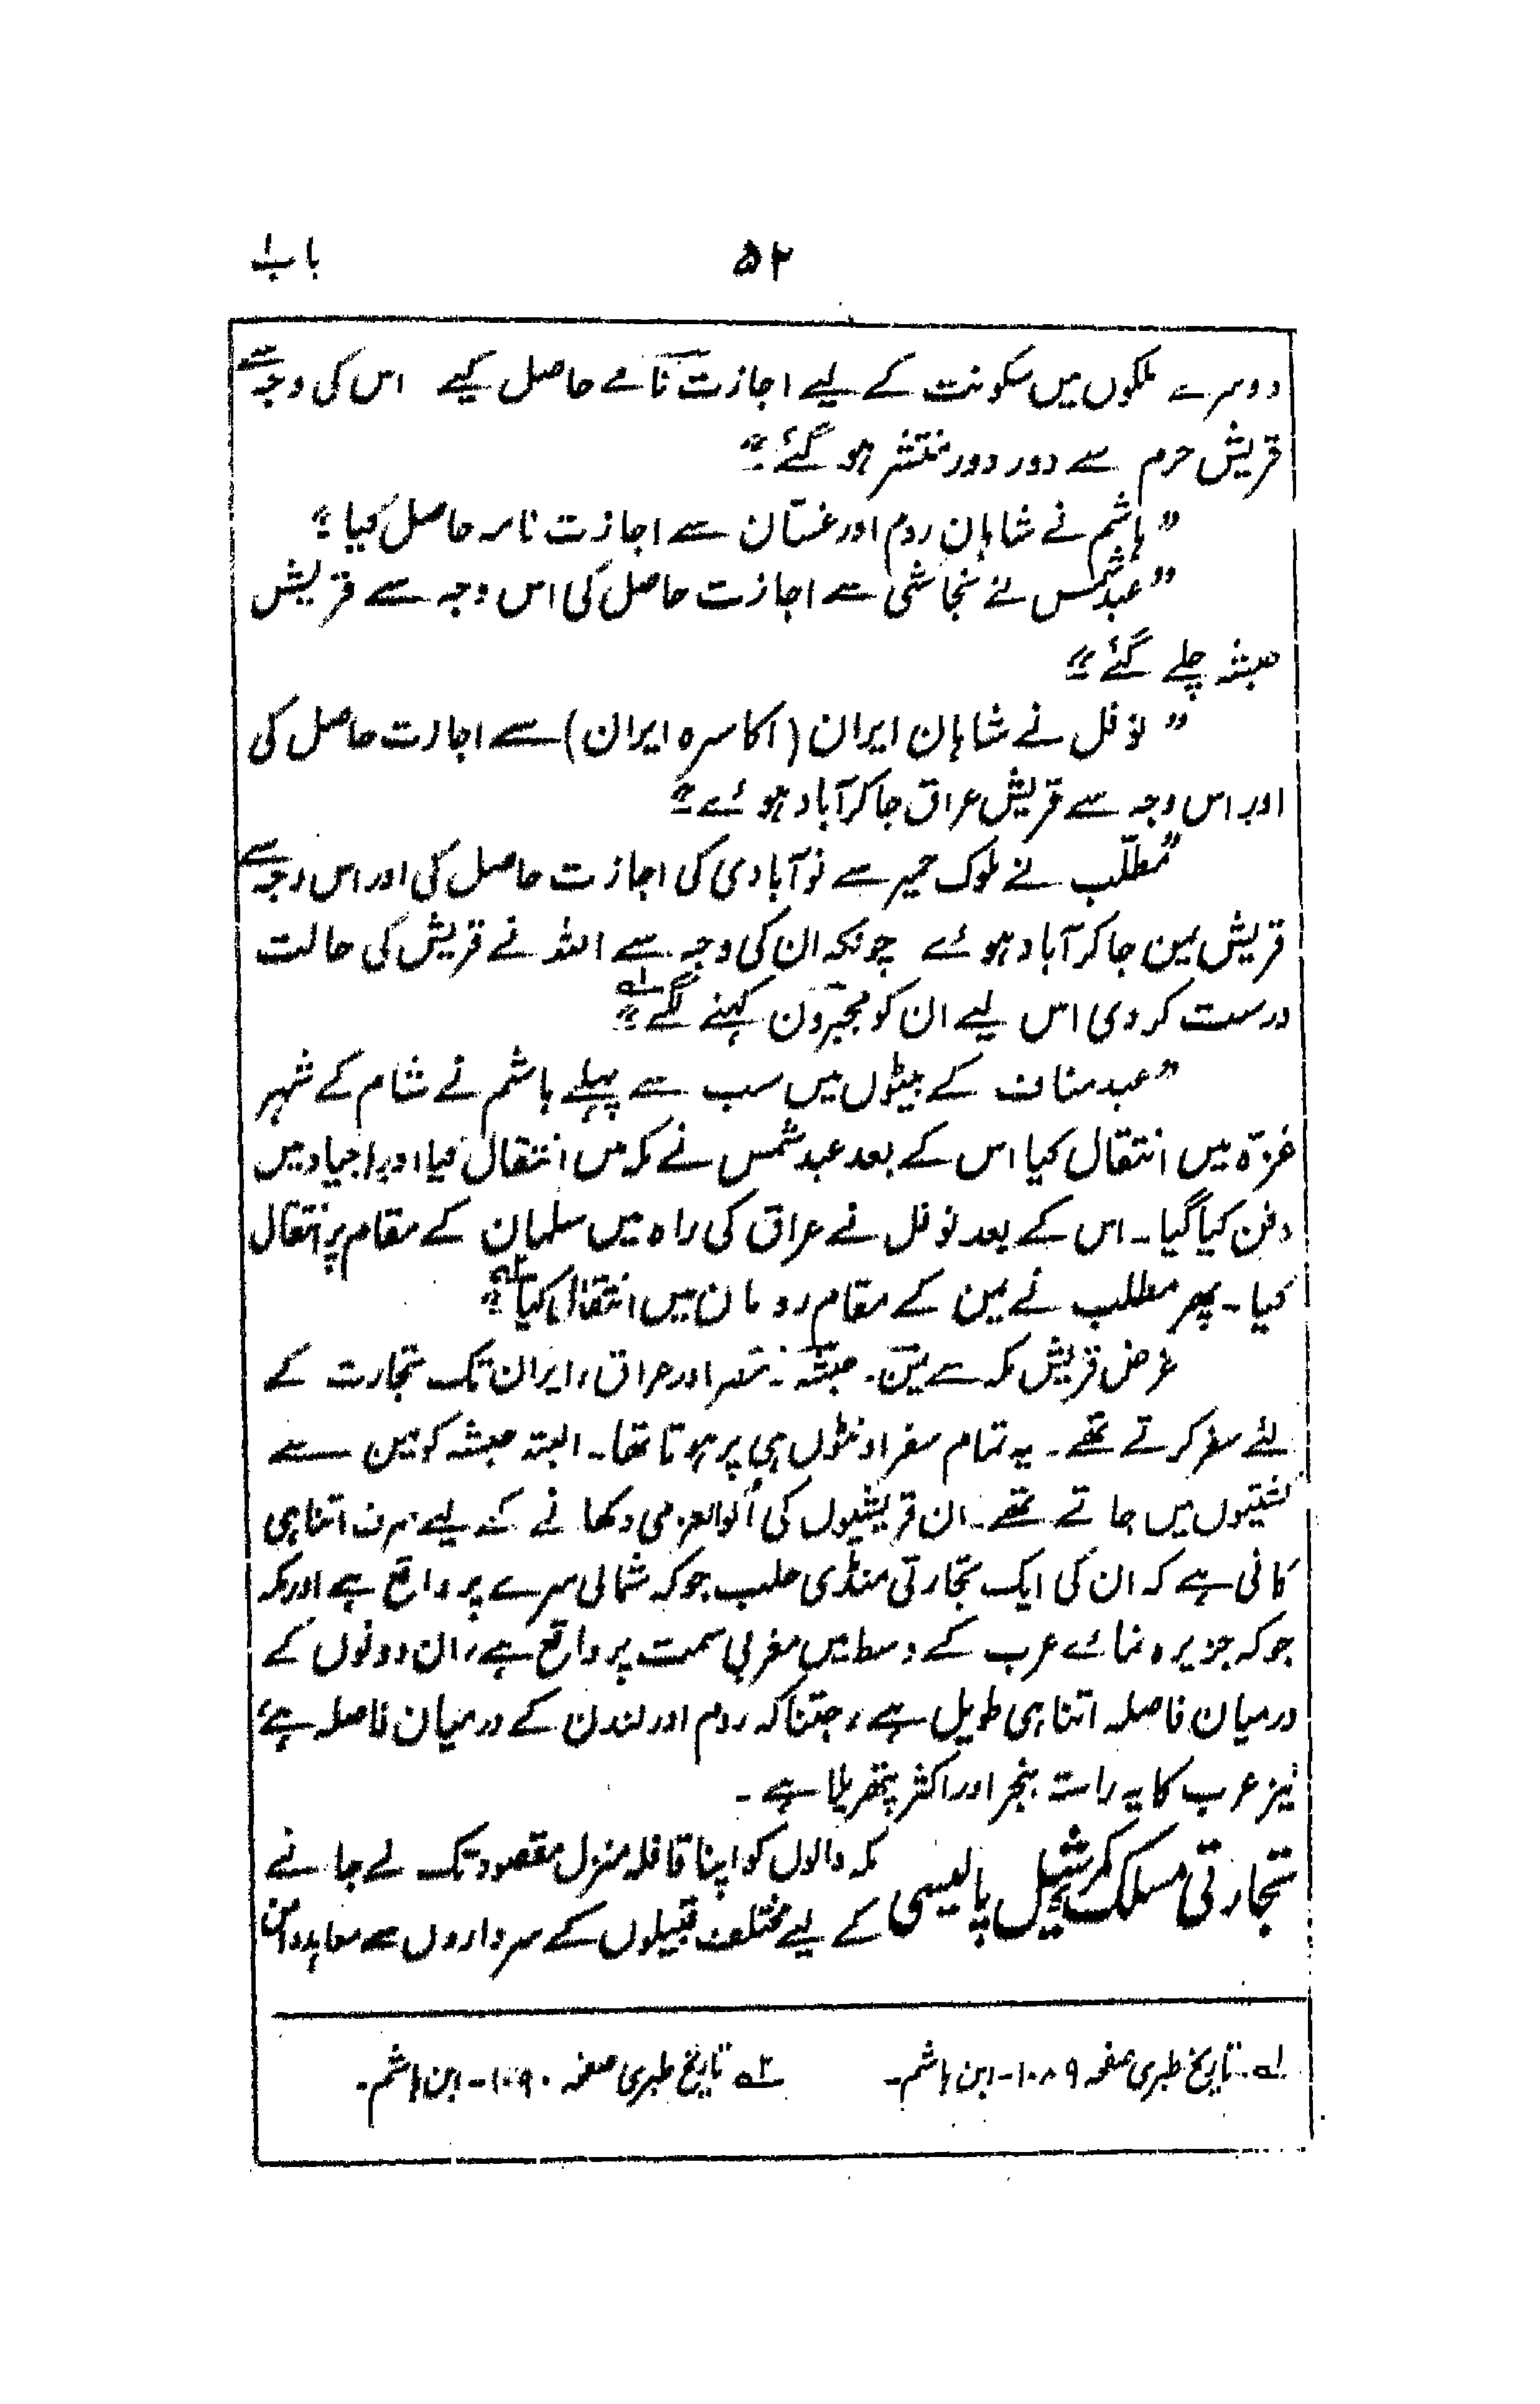 باب ۱
۵۲
دوسرے ملکوں میں سکونت کے لیے اجازت نامے حاصل کیے اس کی وجہ سے
قریش حرم سے دور دور منتشر ہو گئے۔"
"ہاشم نے شاہان روم اور غسّان سے اجازت نامہ حاصل کیا۔"
"عبد شمس نے نجاشی سے اجازت حاصل کی اس وجہ سے قریش
حبشہ چلے گئے۔"
"نوفل نے شاہان ایران (اکاسرہ ایران) سے اجازت حاصل کی
اور اس وجہ سے قریش عراق جا کر آباد ہوئے۔"
"مطّلب نے ملوک حمیر سے نو آبادی کی اجازت حاصل کی اور اس وجہ سے
قریش یمن جا کر آباد ہوئے چونکہ ان کی وجہ سے اللہ نے قریش کی حالت
درست کر دی اس لیے ان کو مجبّرون کہنے لگے۔" لہ
"عبد مناف کے بیٹوں میں سب سے پہلے ہاشم نے شام کے شہر
غزّہ میں انتقال کیا اس کے بعد عبد شمس نے مکہ میں انتقال کیا اور اجیاد میں
دفن کیا گیا۔ اس کے بعد نوفل نے عراق کی راہ میں سلمان کے مقام پر انتقال
کیا۔ پھر مطلب نے یمن کے مقام ردمان میں انتقال کیا۔" ۲ہ
غرض قریش مکہ سے یمن۔ حبشہ۔ اور عراق، ایران تک تجارت کے
لئے سفر کرتے تھے۔ یہ تمام سفر اونٹوں ہی پر ہوتا تھا۔ البتہ حبشہ کو یمن سے
کشتیوں میں جاتے تھے۔ ان قریشیوں کی اُلوالعزمی دکھانے کے لیے صرف اتنا ہی
کافی ہے کہ ان کی ایک تجارتی منڈی حلب جو کہ شمالی سرے پر واقع ہے اور مکہ
جو کہ جزیرہ نمائے عرب کے وسط میں مغربی سمت پر واقع ہے، ان دونوں کے
درمیان فاصلہ اتنا ہی طویل ہے، جتنا کہ روم اور لندن کے درمیان فاصلہ ہے؛
نیز عرب کا یہ راستہ بنجر اور اکثر پتھریلا ہے۔
تجارتی مسلک کمرشیل پالیسی مکہ والوں کو اپنا قافلہ منزل مقصود تک لے جانے
کے لیے مختلف قبیلوں کے سرداروں سے معاہدہ امن
لہ۔ تاریخ طبری صفحہ ۱۰۸۹۔ ابن ہاشم۔ ۲ہ تاریخ طبری صفحہ ۱۰۹۰۔ ابن ہاشم۔